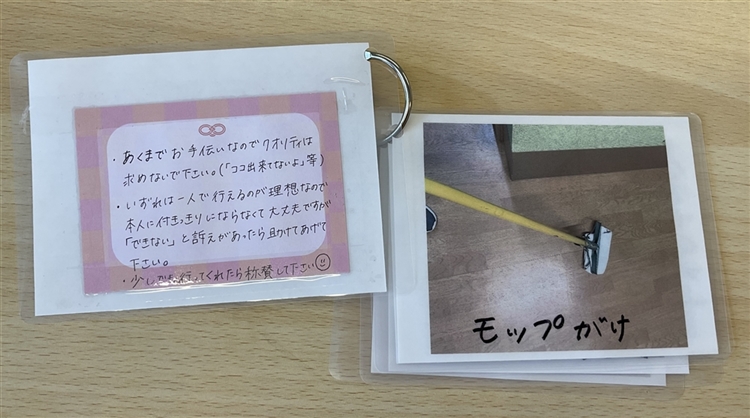 ・あくまでお手伝いなのでクオリティは
求めないで下さい。(「ココ出来てないよ」等)
・いずれは一人で行えるのが理想なので
本人に付きっきりにならなくて大丈夫ですが
「できない」と訴えがあったら助けてあげて
下さい。
・少しでも行ってくれたら称賛して下さい
モップがけ